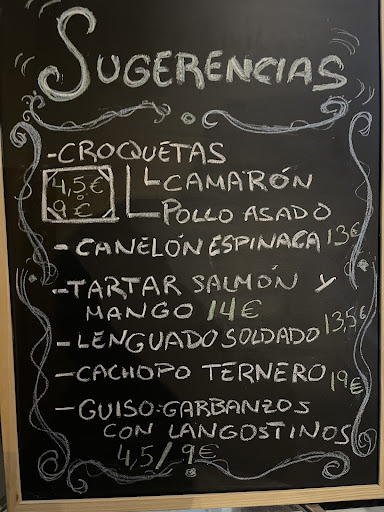 SUGERENCIAS
-CROQUETAS
4,5€ o 9€
CAMARÓN
POLLO ASADO
- CANELÓN ESPINACA 13€
-TARTAR SALMÓN Y
MANGO 14€
- LENGUADO SOLDADO 13,5€
- CACHOPO TERNERO 19€
- GUISO GARBANZOS
CON LANGOSTINOS
4,5/9€